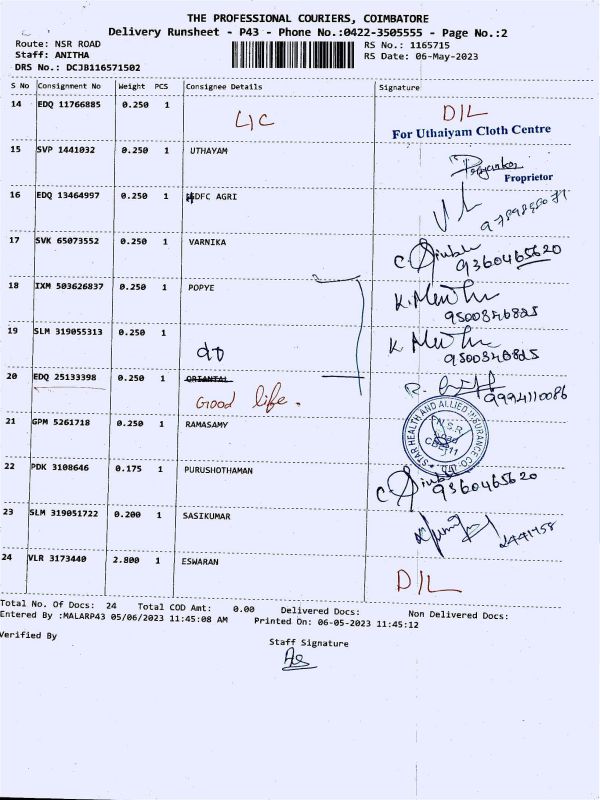 THE PROFESSIONAL COURIERS, COIMBATORE
Delivery Runsheet - P43 - Phone No.:0422-3505555 - Page No.:2
Route: NSR ROAD RS No.: 1165715
Staff: ANITHA RS Date: 06-May-2023
DRS No.: DCJB116571502
S No Consignment No Weight PCS Consignee Details Signature
14 EDQ 11766885 0.250 1 LIC D/L
For Uthaiyam Cloth Centre
15 SVP 1441032 0.250 1 UTHAYAM
Proprietor
16 EDQ 13464997 0.250 1 HDFC AGRI
17 SVK 65073552 0.250 1 VARNIKA
9360465620
18 IXM 503626837 0.250 1 POPYE K.
9500346825
19 SLM 319055313 0.250 1 K.
do 9500346825
20 EDQ 25133398 0.250 1 ORIANTAL R.
Good life. 9994110086
21 GPM 5261718 0.250 1 RAMASAMY
STAR HEALTH AND ALLIED INSURANCE CO
N.S.R.
22 PDK 3108646 0.175 1 PURUSHOTHAMAN
9360465620
23 SLM 319051722 0.200 1 SASIKUMAR
2441758
24 VLR 3173440 2.800 1 ESWARAN
D/L
Total No. Of Docs: 24 Total COD Amt: 0.00 Delivered Docs: Non Delivered Docs:
Entered By :MALARP43 05/06/2023 11:45:08 AM Printed On: 06-05-2023 11:45:12
Verified By Staff Signature